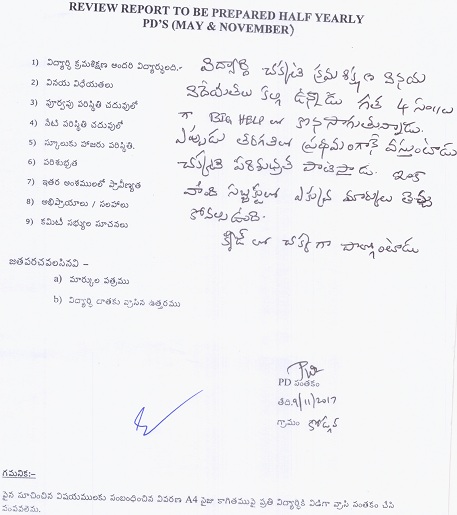 REVIEW REPORT TO BE PREPARED HALF YEARLY
PD'S (MAY & NOVEMBER)
1) విద్యార్థి క్రమశిక్షణ అందరి విద్యార్థులది.-
2) వినయ విధేయతలు
3) పూర్వపు పరిస్థితి చదువులో
4) నేటి పరిస్థితి చదువులో
5) స్కూలుకు హాజరు పరిస్థితి.
6) పరిశుభ్రత
7) ఇతర అంశములలో ప్రావీణ్యత
8) అభిప్రాయాలు / సలహాలు
9) కమిటీ సభ్యుల సూచనలు
విద్యార్థి చక్కటి క్రమశిక్షణ వినయ
విదేయతలు కల్గి ఉన్నాడు గత 4 సం॥లు
గా BIG HELP లో కొనసాగుతున్నాడు.
ఎప్పుడు తరగతిలో ప్రథమంగానే వస్తుంటాడు
చక్కటి పరిశుభ్రత పాటిస్తాడు. ఇంకా
సబ్జెక్టులో ఎక్కువ మార్కులు తెచ్చు
కోవలసి ఉంది.
క్విజ్ లో చక్కగా పాల్గొంటాడు
జతపరచవలసినవి –
a) మార్కుల పత్రము
b) విద్యార్థి దాతకు వ్రాసిన ఉత్తరము
PD సంతకం
తేది: 9/11/2017
గ్రామం
గమనిక:-
పైన సూచించిన విషయములకు సంబంధించిన వివరణ A4 సైజు కాగితముపై ప్రతి విద్యార్థికి విడిగా వ్రాసి సంతకం చేసి
పంపవలెను.